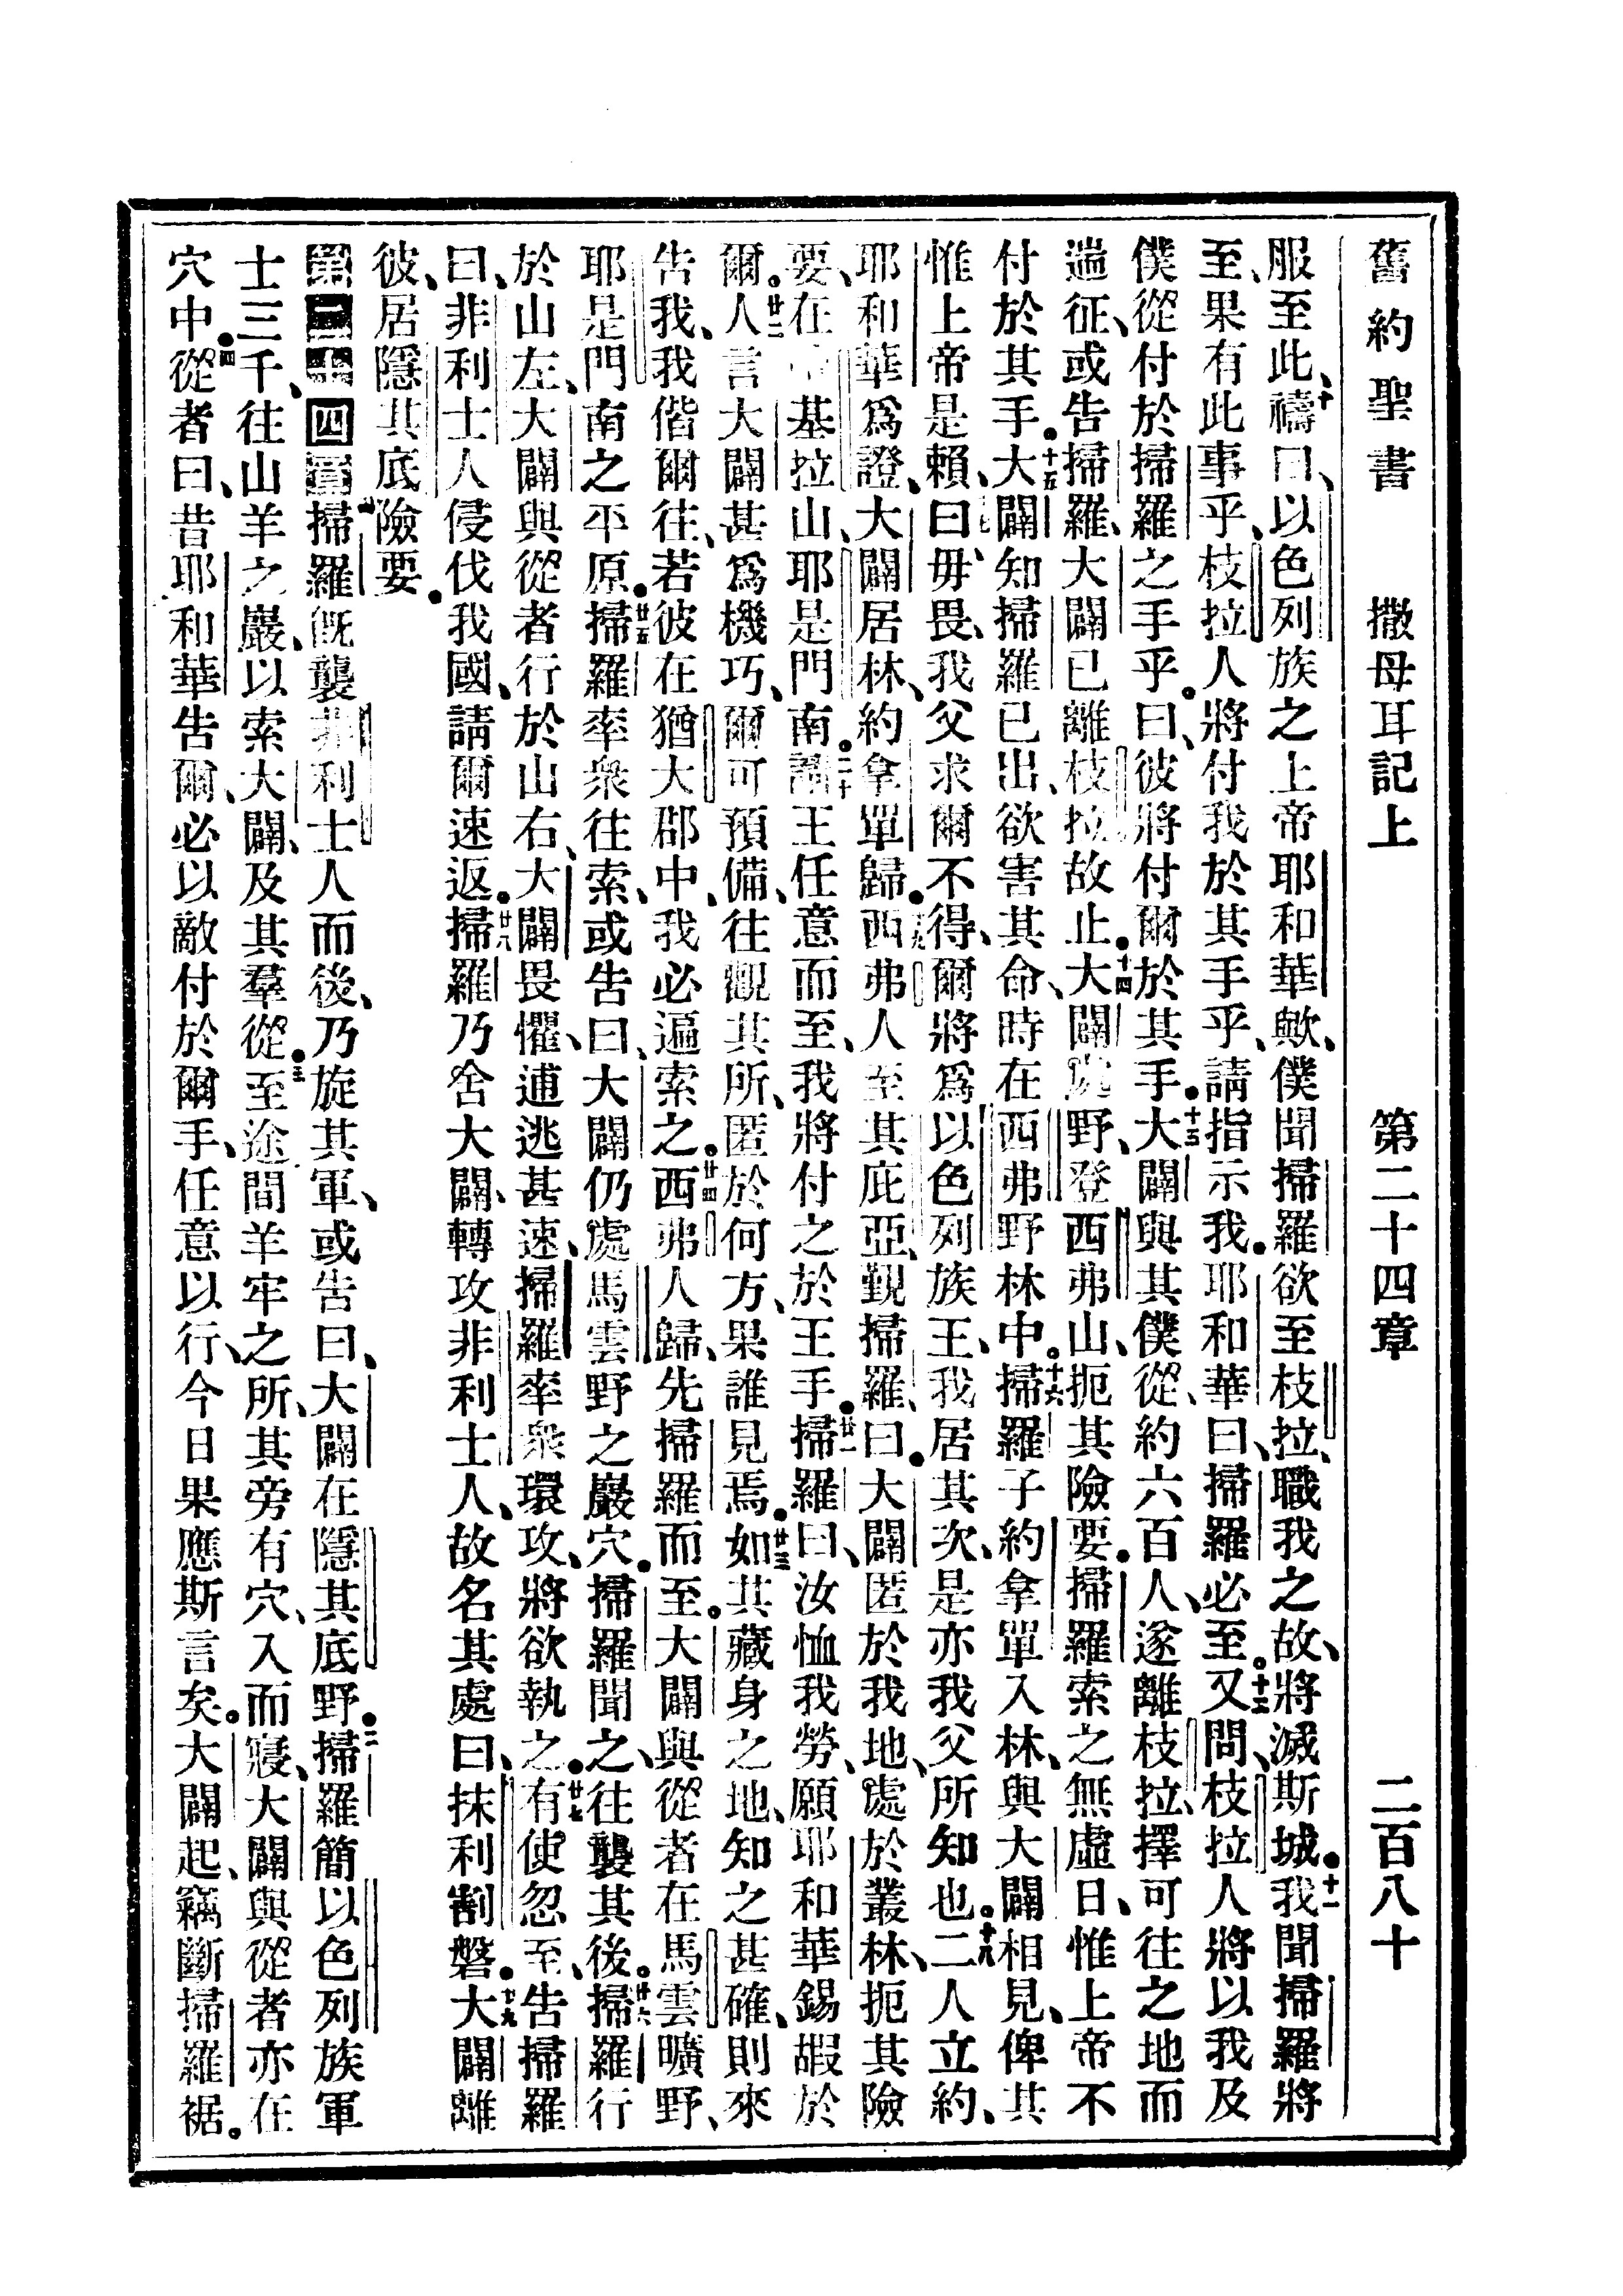 舊約聖書 撒母耳記上 第二十四章 二百八十
服至此、十禱曰、以色列族之上帝耶和華歟、僕聞掃羅欲至枝拉、職我之故、將滅斯城。十一我聞掃羅將
至、果有此事乎、枝拉人將付我於其手乎、請指示我。耶和華曰、掃羅必至。十二又問、枝拉人將以我及
僕從付於掃羅之手乎。曰、彼將付爾於其手。十三大闢與其僕從、約六百人、遂離枝拉、擇可往之地而
遄征、或告掃羅、大闢已離枝拉故止。十四大闢處野、登西弗山、扼其險要。掃羅索之無虛日、惟上帝不
付於其手。十五大闢知掃羅已出、欲害其命、時在西弗野林中。十六掃羅子約拿單入林、與大闢相見、俾其
惟上帝是賴、曰、毋畏、我父求爾不得、爾將爲以色列族王、我居其次、是亦我父所知也。十八二人立約、
耶和華爲證、大闢居林、約拿單歸。十九西弗人至其庇亞、覲掃羅、曰。大闢匿於我地、處於叢林、扼其險
要、在基拉山、耶是門南。二十請王任意而至、我將付之於王手。廿一掃羅曰、汝恤我勞、願耶和華錫嘏於
爾。廿二人言大闢甚爲機巧、爾可預備、往觀其所、匿於何方、果誰見焉。廿三如其藏身之地、知之甚確、則來
告我、我偕爾往、若彼在猶大郡中、我必遍索之。廿四西弗人歸、先掃羅而至。大闢與從者在馬雲曠野、
耶是門南之平原。廿五掃羅率衆往索、或告曰、大闢仍處馬雲野之巖穴。掃羅聞之、往襲其後。廿六掃羅行
於山左、大闢與從者行於山右、大闢畏懼、逋逃甚速、掃羅率衆環攻、將欲執之。廿七有使忽至、告掃羅
曰、非利士人侵伐我國、請爾速返。廿八掃羅乃舍大闢、轉攻非利士人、故名其處曰、抹利割磐。廿九大闢離
彼、居隱其底險要。
第二十四章 一掃羅旣襲非利士人而後、乃旋其軍、或告曰、大闢在隱其底野。二掃羅簡以色列族軍
士三千、往山羊之巖、以索大闢、及其羣從。三至途間羊牢之所、其旁有穴、入而寢、大闢與從者亦在
穴中。四從者曰、昔耶和華告爾、必以敵付於爾手、任意以行、今日果應斯言矣。大闢起、竊斷掃羅裾。